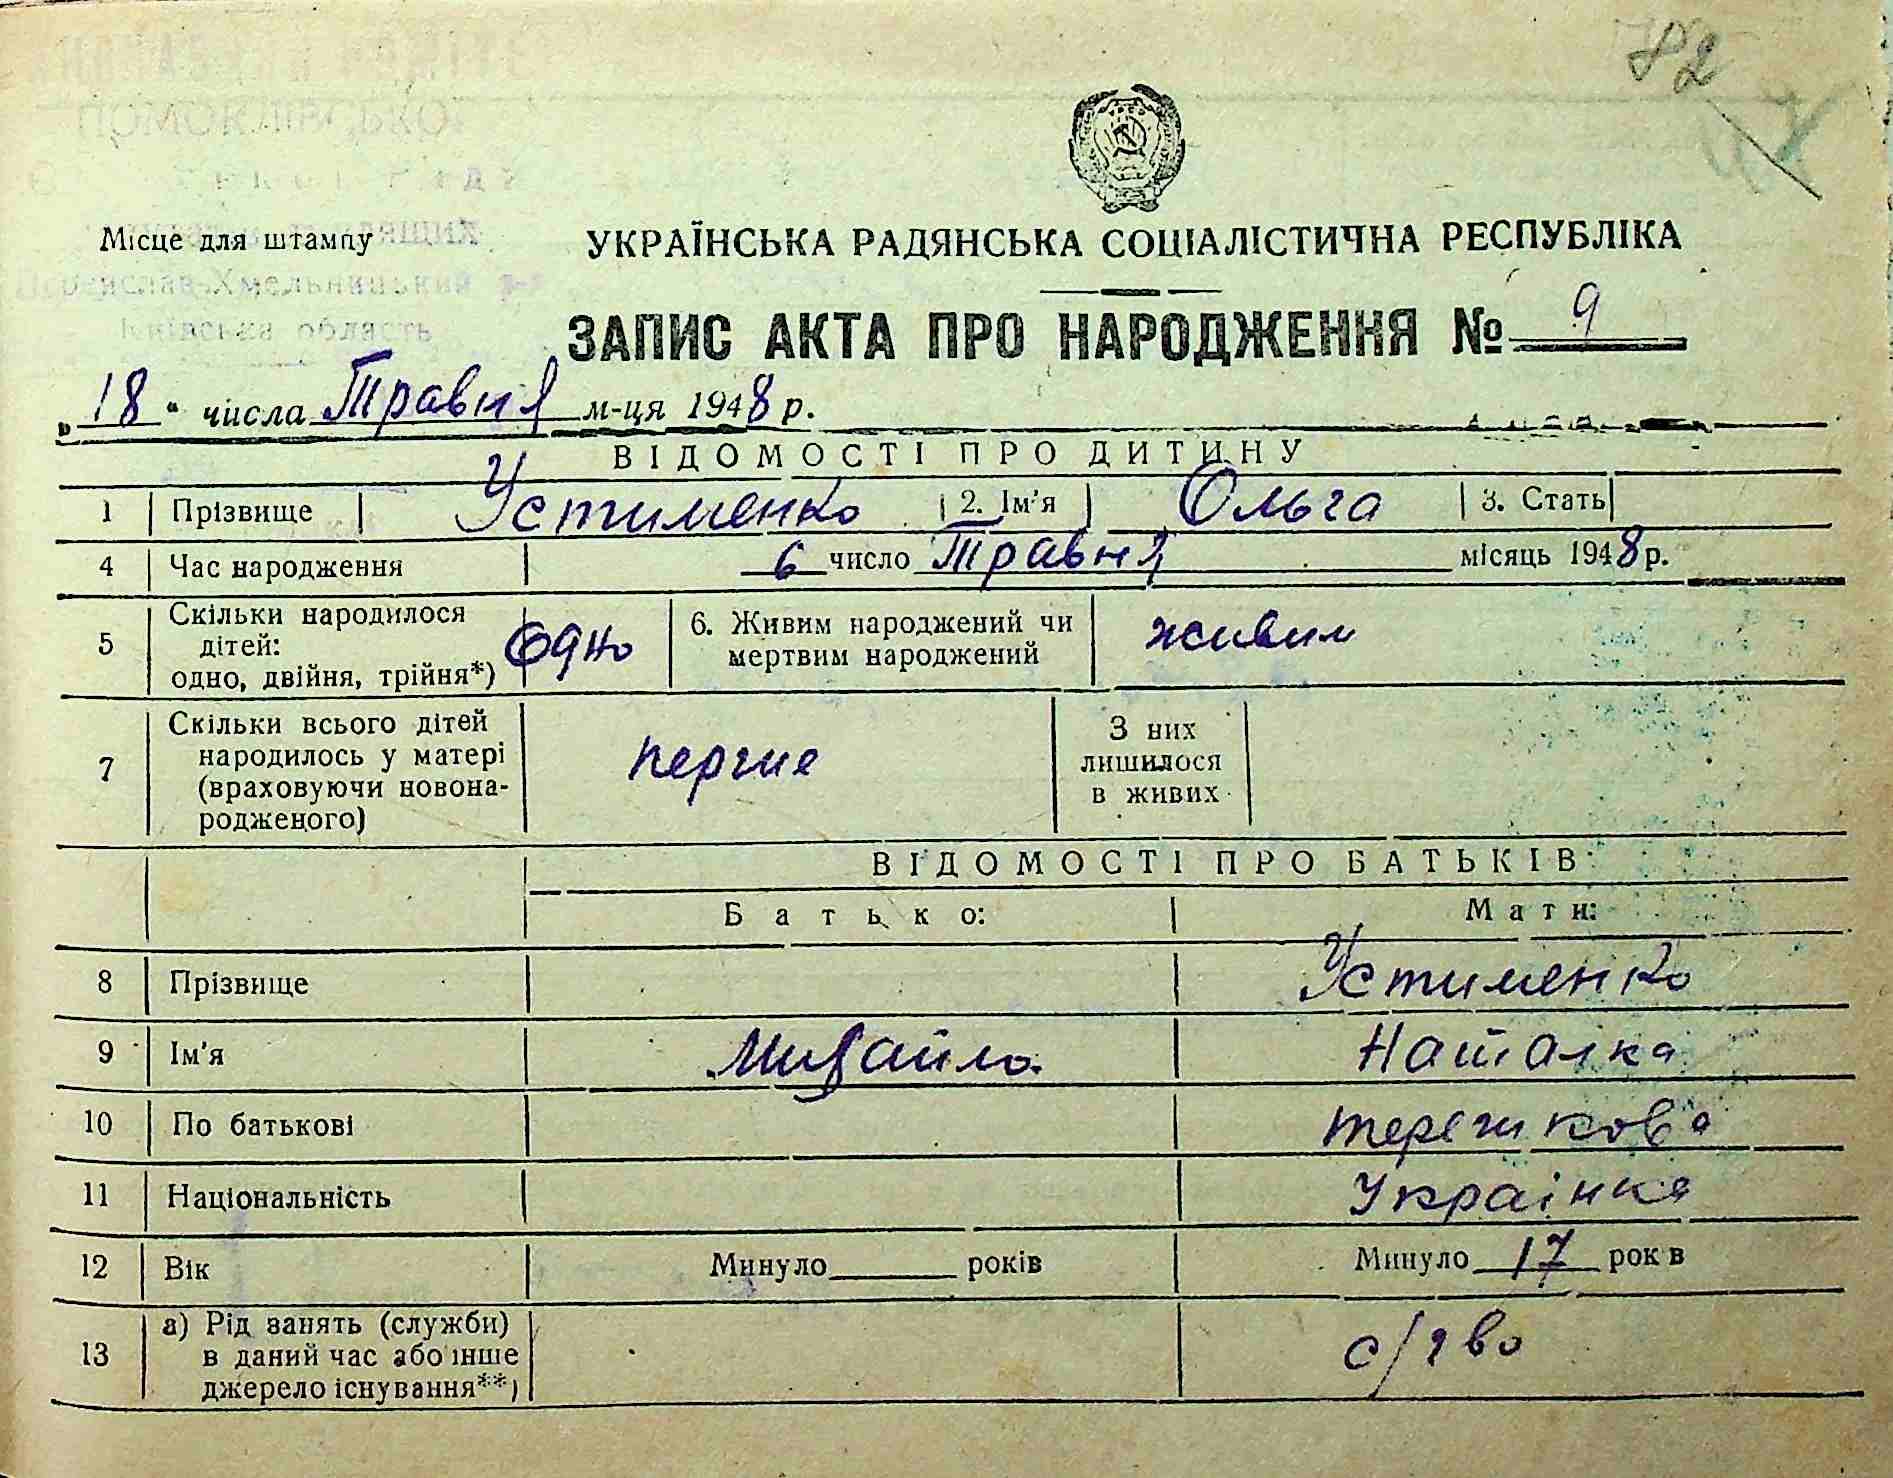 82
Місце для штампу
УКРАЇНСЬКА РАДЯНСЬКА СОЦІАЛІСТИЧНА РЕСПУБЛІКА
ЗАПИС АКТА ПРО НАРОДЖЕННЯ № 9
„18“ числа Травня м-ця 1948 р.
ВІДОМОСТІ ПРО ДИТИНУ
1 Прізвище Устименко 2. Ім'я Ольга 3. Стать
4 Час народження 6 число Травня місяць 1948 р.
5 Скільки народилося дітей: одно, двійня, трійня*) Одно 6. Живим народжений чи мертвим народжений живим
7 Скільки всього дітей народилось у матері (враховуючи новона-родженого) перше З них лишилося в живих
ВІДОМОСТІ ПРО БАТЬКІВ
Батько: Мати:
8 Прізвище Устименко
9 Ім'я Михайло. Наталка
10 По батькові терешкова
11 Національність Українка
12 Вік Минуло років Минуло 17 років
13 а) Рід занять (служби) в даний час або інше джерело існування**) с/г во